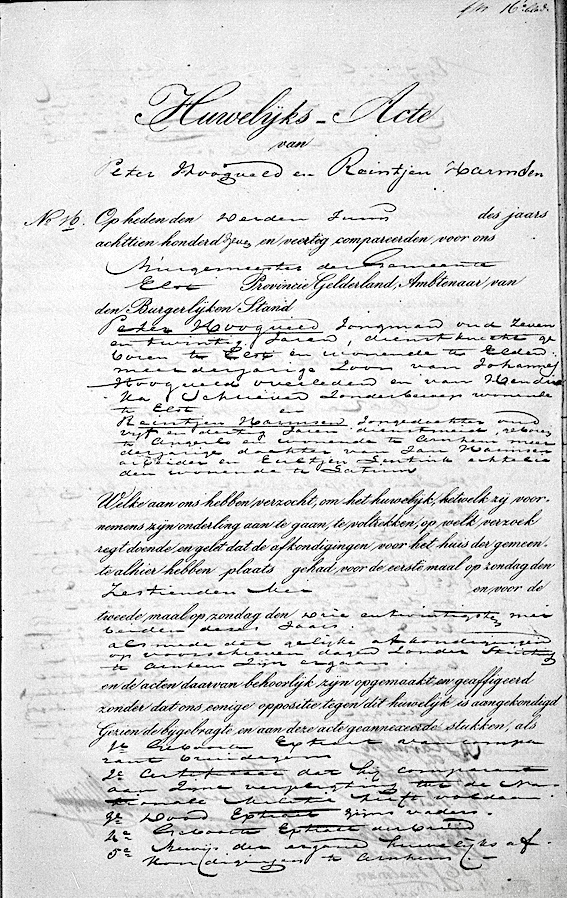 16
Huwelijks-Acte
van
Peter Hoogveld en Reintjen Harmsen
No 16. Op heden den derden Junij des jaars
achttien honderd zeven en veertig compareerden, voor ons
Burgemeester der Gemeente
Elst Provincie Gelderland, Ambtenaar van
den Burgerlijken Stand
Peter Hoogveld Jongman oud zeven
en twintig Jaren, dienstknecht ge
boren te Elst en wonende te Elden
meerderjarige Zoon van Johannes
Hoogveld overleden en van Hendri
ka zonder beroep wonende
te Elst en
Reintjen Harmsen Jongedochter oud
vijf en Jaren dienstmeid, geboren
te Angerlo en wonende te Arnhem meer
derjarige dochter van Jan Harmsen
arbeider en echtelie
den wonende te Lathum
Welke aan ons hebben verzocht, om het huwelijk, hetwelk zij voor-
nemens zijn onderling aan te gaan, te voltrekken, op welk verzoek
regt doende en gelet dat de afkondigingen voor het huis der gemeen-
te alhier hebben plaats gehad, voor de eerste maal op zondag den
Zestienden Mei en voor de
tweede maal op zondag den drie en twintigsten mei
beiden dezes Jaars
alsmede der gelijke afkondigingen
op voorschreven dagen zonder stuiting
te Arnhem zijn ergaan.
en de acten daarvan behoorlijk zijn opgemaakt en geaffigeerd
zonder dat ons eenige oppositie tegen dit huwelijk is aangekondigd
Gezien de bijgebragte en aan deze acte geannexeerde stukken, als
1e Geboorte Extract van compa
rant bruidegom
2e Certificaat dat hij comparant
aan zijne verpligting tot de Na-
tionale Militie heeft voldaan.
3e Dood Extract zijns vaders.
4e Geboorte Extract der bruid
5e Bewijs der ergane huwelijks af-
kondigingen te Arnhem